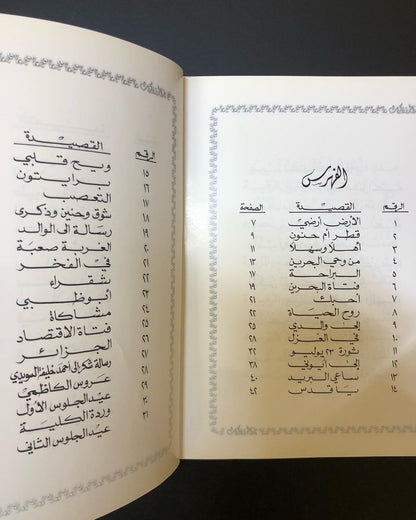 الفهرس
الرقم القصيدة الصفحة
١ الأرض أرضي ٧
٢ قطر أم حنون
٣ أهلا وسهلا ١١
٤ من وحي البحرين ١٣
٥ البراحة ١٧
٦ فتاة البحرين
٧ أحبك
٨ روح الحياة ٢٢
٩ إلى والدي ٢٥
١٠ في الغزل ٢٨
١١ ثورة ٢٣ يوليو ٣٢
١٢ إلى ٣٨
١٣ ساعي البريد ٤٠
١٤ يا قدس ٤٢
الرقم القصيدة
١٥ ويح قلبي
١٦ برايتون
١٧ التعصب
١٨ شوق وحنين وذكرى
١٩ رسالة إلى الوالد
٢٠ الغربة صعبة
٢١ في الفخر
٢٢ شقراء
٢٣ أبوظبي
٢٤ مشكاة
٢٥ فتاة الاقتصاد
٢٦ الجزائر
٢٧ رسالة شكر إلى أحمد خليفة السويدي
٢٨ عروس الكاظمي
٢٩ عيد الجلوس الأول
٣٠ وردة الكلية
٣١ عيد الجلوس الثاني